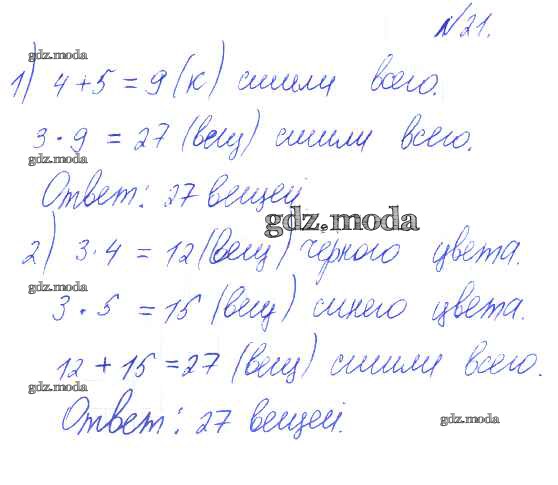 №21.
gdz.moda
1) 4+5=9 (к) сшили всего.
3·9=27 (вещ) сшили всего.
gdz.moda
Ответ: 27 вещей
gdz.moda
2) 3·4=12 (вещ) черного цвета.
gdz.moda
3·5=15 (вещ) синего цвета.
12+15=27 (вещ) сшили всего.
gdz.moda
Ответ: 27 вещей.
gdz.moda